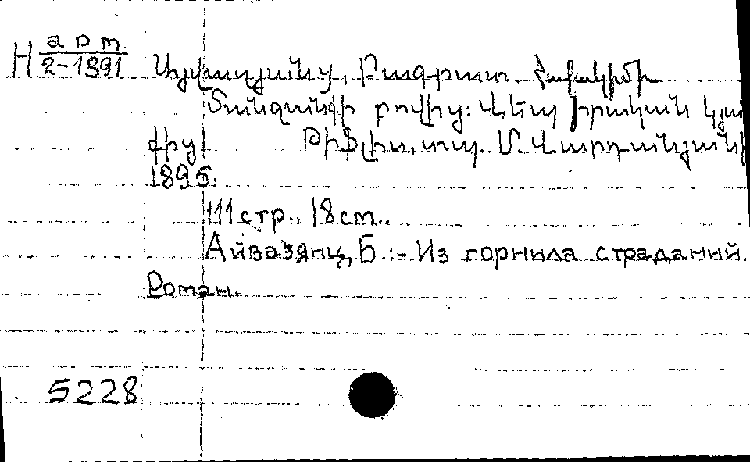 арт
Н 2-1891 Այվազյանց, Բագրատ.
Տանջանքի բովից: Վեպ իրական կյա
քից Թիֆլիս, տպ. Մ. Վարդանյանի
1895.
111 стр., 18 cm..
Айвазянц, Б.:- Из горнила страданий.
Роман.
5228